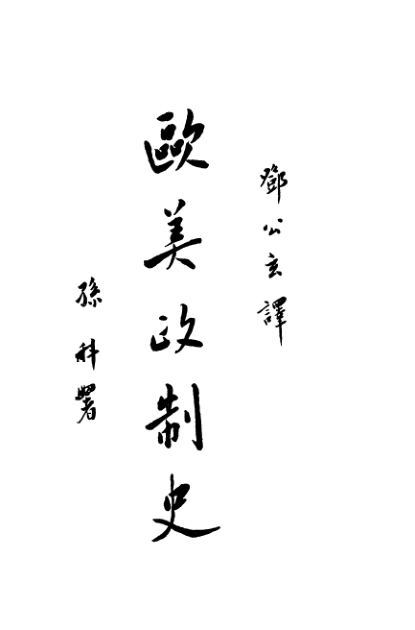 鄧公玄譯
歐美政制史
孫科署